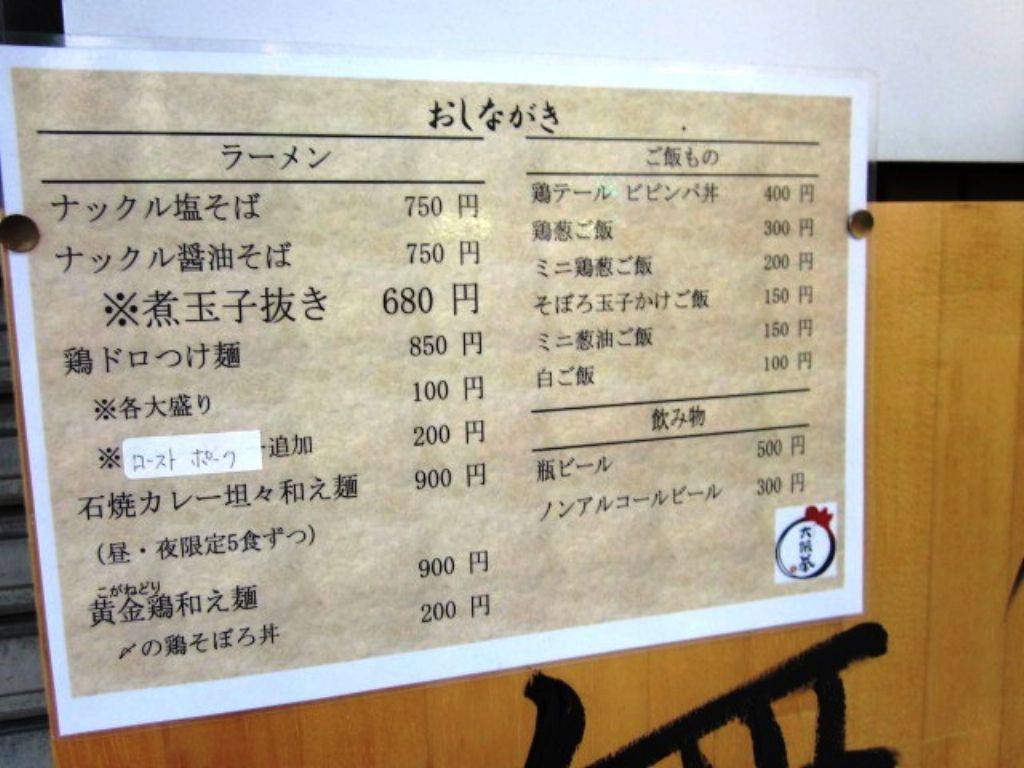 おしながき
ラーメン
ナックル塩そば 750 円
ナックル醤油そば 750 円
※煮玉子抜き 680 円
鶏ドロつけ麺 850 円
※各大盛り 100 円
※ロースト ポーク 追加 200 円
石焼カレー坦々和え麺 900 円
(昼・夜限定5食ずつ)
こがねどり
黄金鶏和え麺 900 円
〆の鶏そぼろ丼 200 円
ご飯もの
鶏テール ビビンバ丼 400 円
鶏葱ご飯 300 円
ミニ鶏葱ご飯 200 円
そぼろ玉子かけご飯 150 円
ミニ葱油ご飯 150 円
白ご飯 100 円
飲み物
瓶ビール 500 円
ノンアルコールビール 300 円
大阪